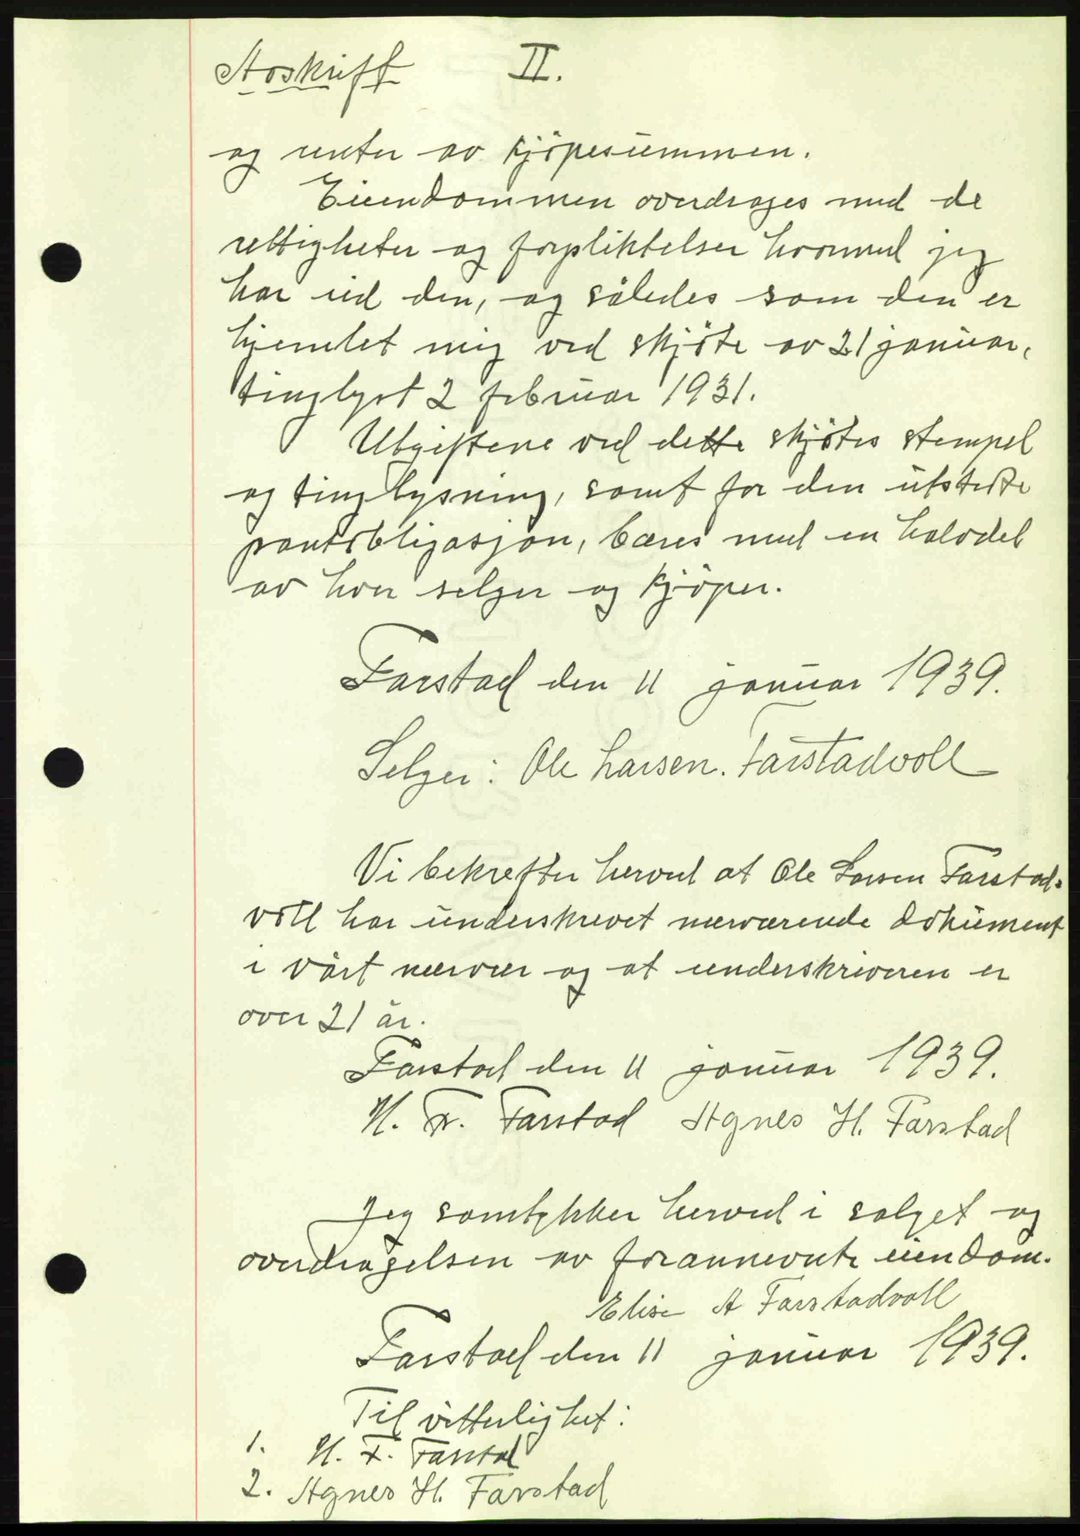 Avskrift II.
og renter av kjöpesummen.
Eiendommen overdrages med de
rettigheter og forpliktelser hvormed jeg
har eid den, og således som den er
hjemlet mig ved skjöte av 21 januar,
tinglyst 2 februar 1931.
Utgiftene ved dette skjötes stempel
og tinglysning, samt for den utstedte
pantobligasjon, bæres med en halvdel
av hver selger og kjöper.
Farstad den 11 januar 1939.
Selger: Ole Larsen. Farstadvoll
Vi bekrefter herved at Ole Larsen Farstad-
voll har underskrevet nærværende dokument
i vårt nærvær og at underskriveren er
over 21 år.
Farstad den 11 januar 1939.
H. F. Farstad Agnes H. Farstad
Jeg samtykker herved i salget og
overdragelsen av forannevnte eiendom.
Elise A Farstadvoll
Farstad den 11 januar 1939.
Til vitterlighet:
1. H. F. Farstad
2. Agnes H. Farstad